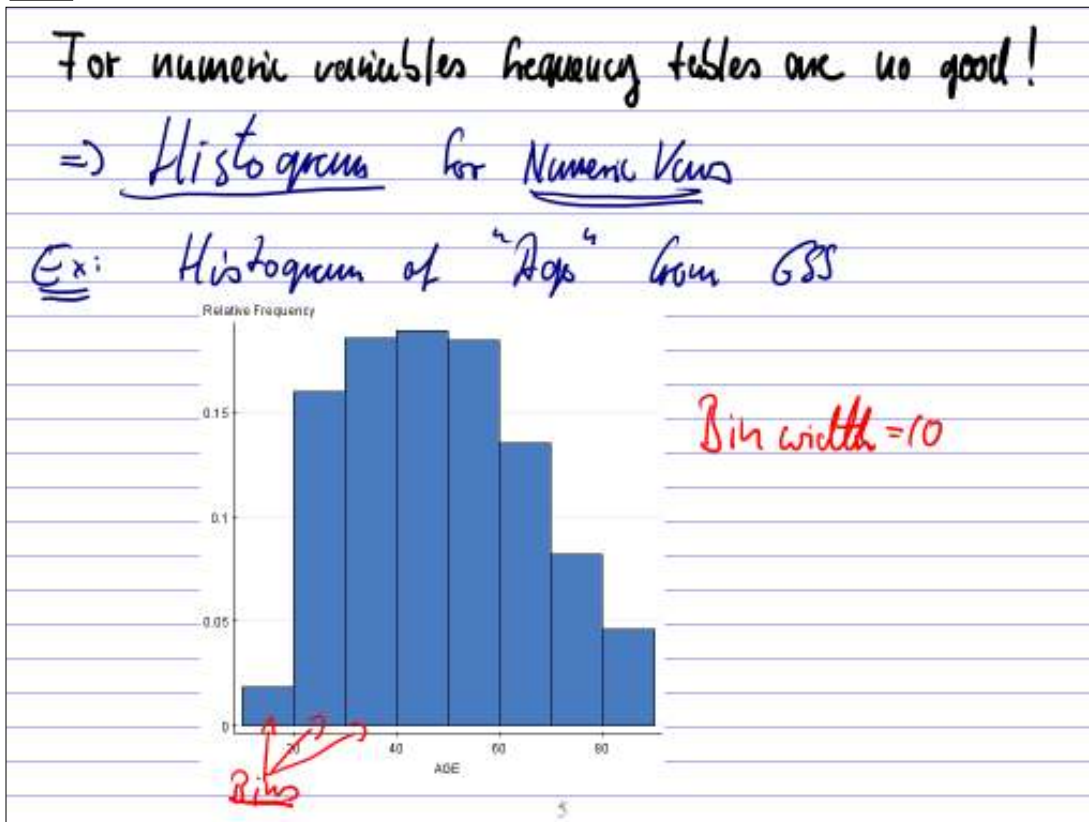 For numeric variables frequency tables are no good!
=> Histogram for Numeric Vars
Ex: Histogram of "Age" from GSS
Relative Frequency
0.15
Bin width = 10
0.1
0.05
0
20 40 60 80
AGE
Bins
5